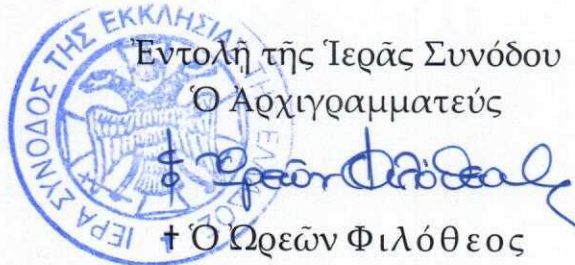 ΙΕΡΑ ΣΥΝΟΔΟΣ ΤΗΣ ΕΚΚΛΗΣΙΑΣ ΤΗΣ ΕΛΛΑΔΟΣ
Ἐντολῇ τῆς Ἱερᾶς Συνόδου
Ὁ Ἀρχιγραμματεύς
† Ὠρεῶν Φιλόθεος
† Ὁ Ὠρεῶν Φιλόθεος